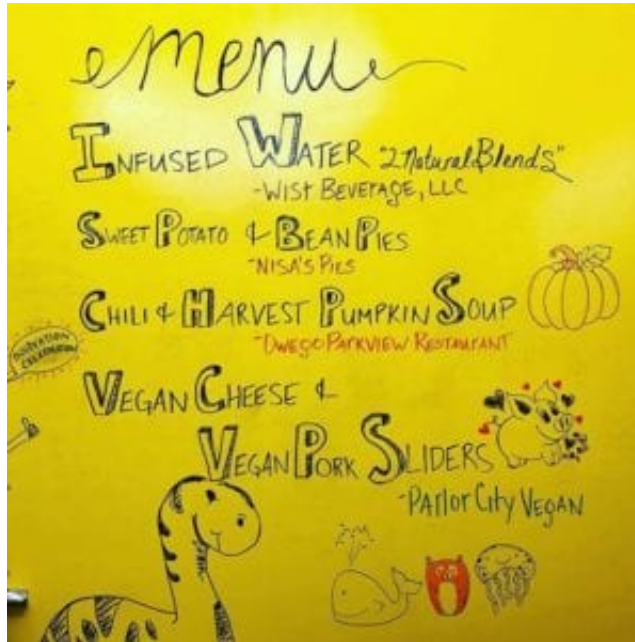 Menu
INFUSED WATER "2 Natural Blends"
-WIST BEVERAGE, LLC
SWEET POTATO & BEAN PIES
-NISA'S PIES
CHILI & HARVEST PUMPKIN SOUP
-OWEGO PARKVIEW RESTAURANT
CELEBRATION
VEGAN CHEESE &
VEGAN PORK SLIDERS
-PARLOR CITY VEGAN